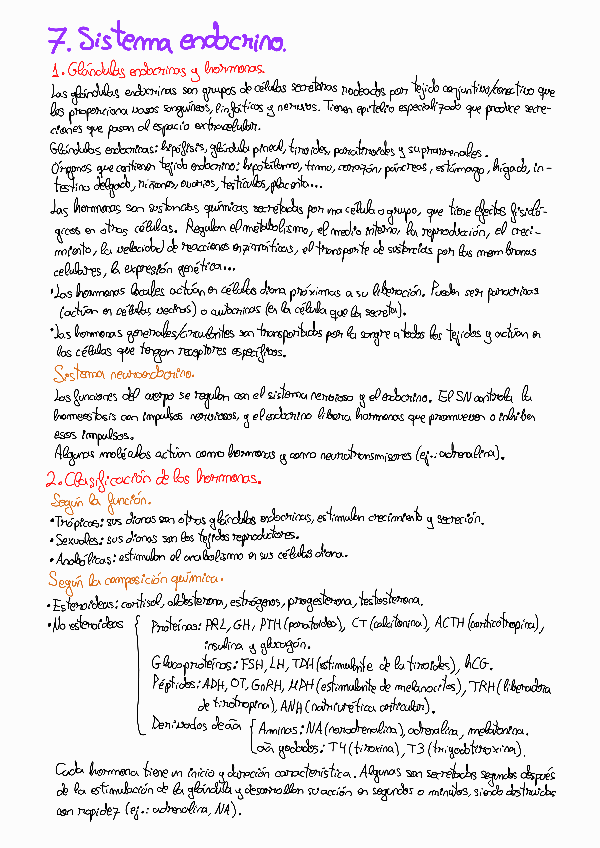 7. Sistema endocrino.
1. Glándulas endocrinas y hormonas.
Las glándulas endocrinas son grupos de células secretoras rodeados por tejido conjuntivo/conectivo que
les proporciona vasos sanguíneos, linfáticos y nervios. Tienen epitelio especializado que produce secre-
ciones que pasan al espacio extracelular.
Glándulas endocrinas: hipófisis, glándula pineal, tiroides, paratiroides y suprarrenales.
Órganos que contienen tejido endocrino: hipotálamo, timo, corazón, páncreas, estómago, hígado, in-
testino delgado, riñones, ovarios, testículos, placenta...
Las hormonas son sustancias químicas secretadas por una célula o grupo, que tiene efectos fisioló-
gicos en otras células. Regulan el metabolismo, el medio interno, la reproducción, el creci-
miento, la velocidad de reacciones enzimáticas, el transporte de sustancias por las membranas
celulares, la expresión genética...
• Las hormonas locales actúan en células diana próximas a su liberación. Pueden ser paracrinas
(actúan en células vecinas) o autocrinas (en la célula que la secreta).
• Las hormonas generales/circulantes son transportadas por la sangre a todos los tejidos y actúan en
las células que tengan receptores específicos.
Sistema neuroendocrino.
Las funciones del cuerpo se regulan con el sistema nervioso y el endocrino. El SN controla la
homeostasis con impulsos nerviosos, y el endocrino libera hormonas que promueven o inhiben
esos impulsos.
Algunas moléculas actúan como hormonas y como neurotransmisores (ej.: adrenalina).
2. Clasificación de las hormonas.
Según la función.
• Trópicas: sus dianas son otras glándulas endocrinas, estimulan crecimiento y secreción.
• Sexuales: sus dianas son los tejidos reproductores.
• Anabólicas: estimulan el anabolismo en sus células diana.
Según la composición química.
• Esteroideas: cortisol, aldosterona, estrógenos, progesterona, testosterona.
• No esteroideas Proteínas: PRL, GH, PTH (paratoidea), CT (calcitonina), ACTH (corticotropina),
insulina y glucagón.
Glucoproteínas: FSH, LH, TDH (estimulante de la tiroides), hCG.
Péptidos: ADH, OT, GnRH, MDH (estimulante de melanocitos), TRH (liberadora
de tirotropina), ANH (natriurética auricular).
Derivados de aa Aminas: NA (noradrenalina), adrenalina, melatonina.
aa yodados: T4 (tiroxina), T3 (triyodotiroxina).
Cada hormona tiene un inicio y duración característica. Algunas son secretadas segundos después
de la estimulación de la glándula y desarrollan su acción en segundos o minutos, siendo destruidas
con rapidez (ej.: adrenalina, NA).